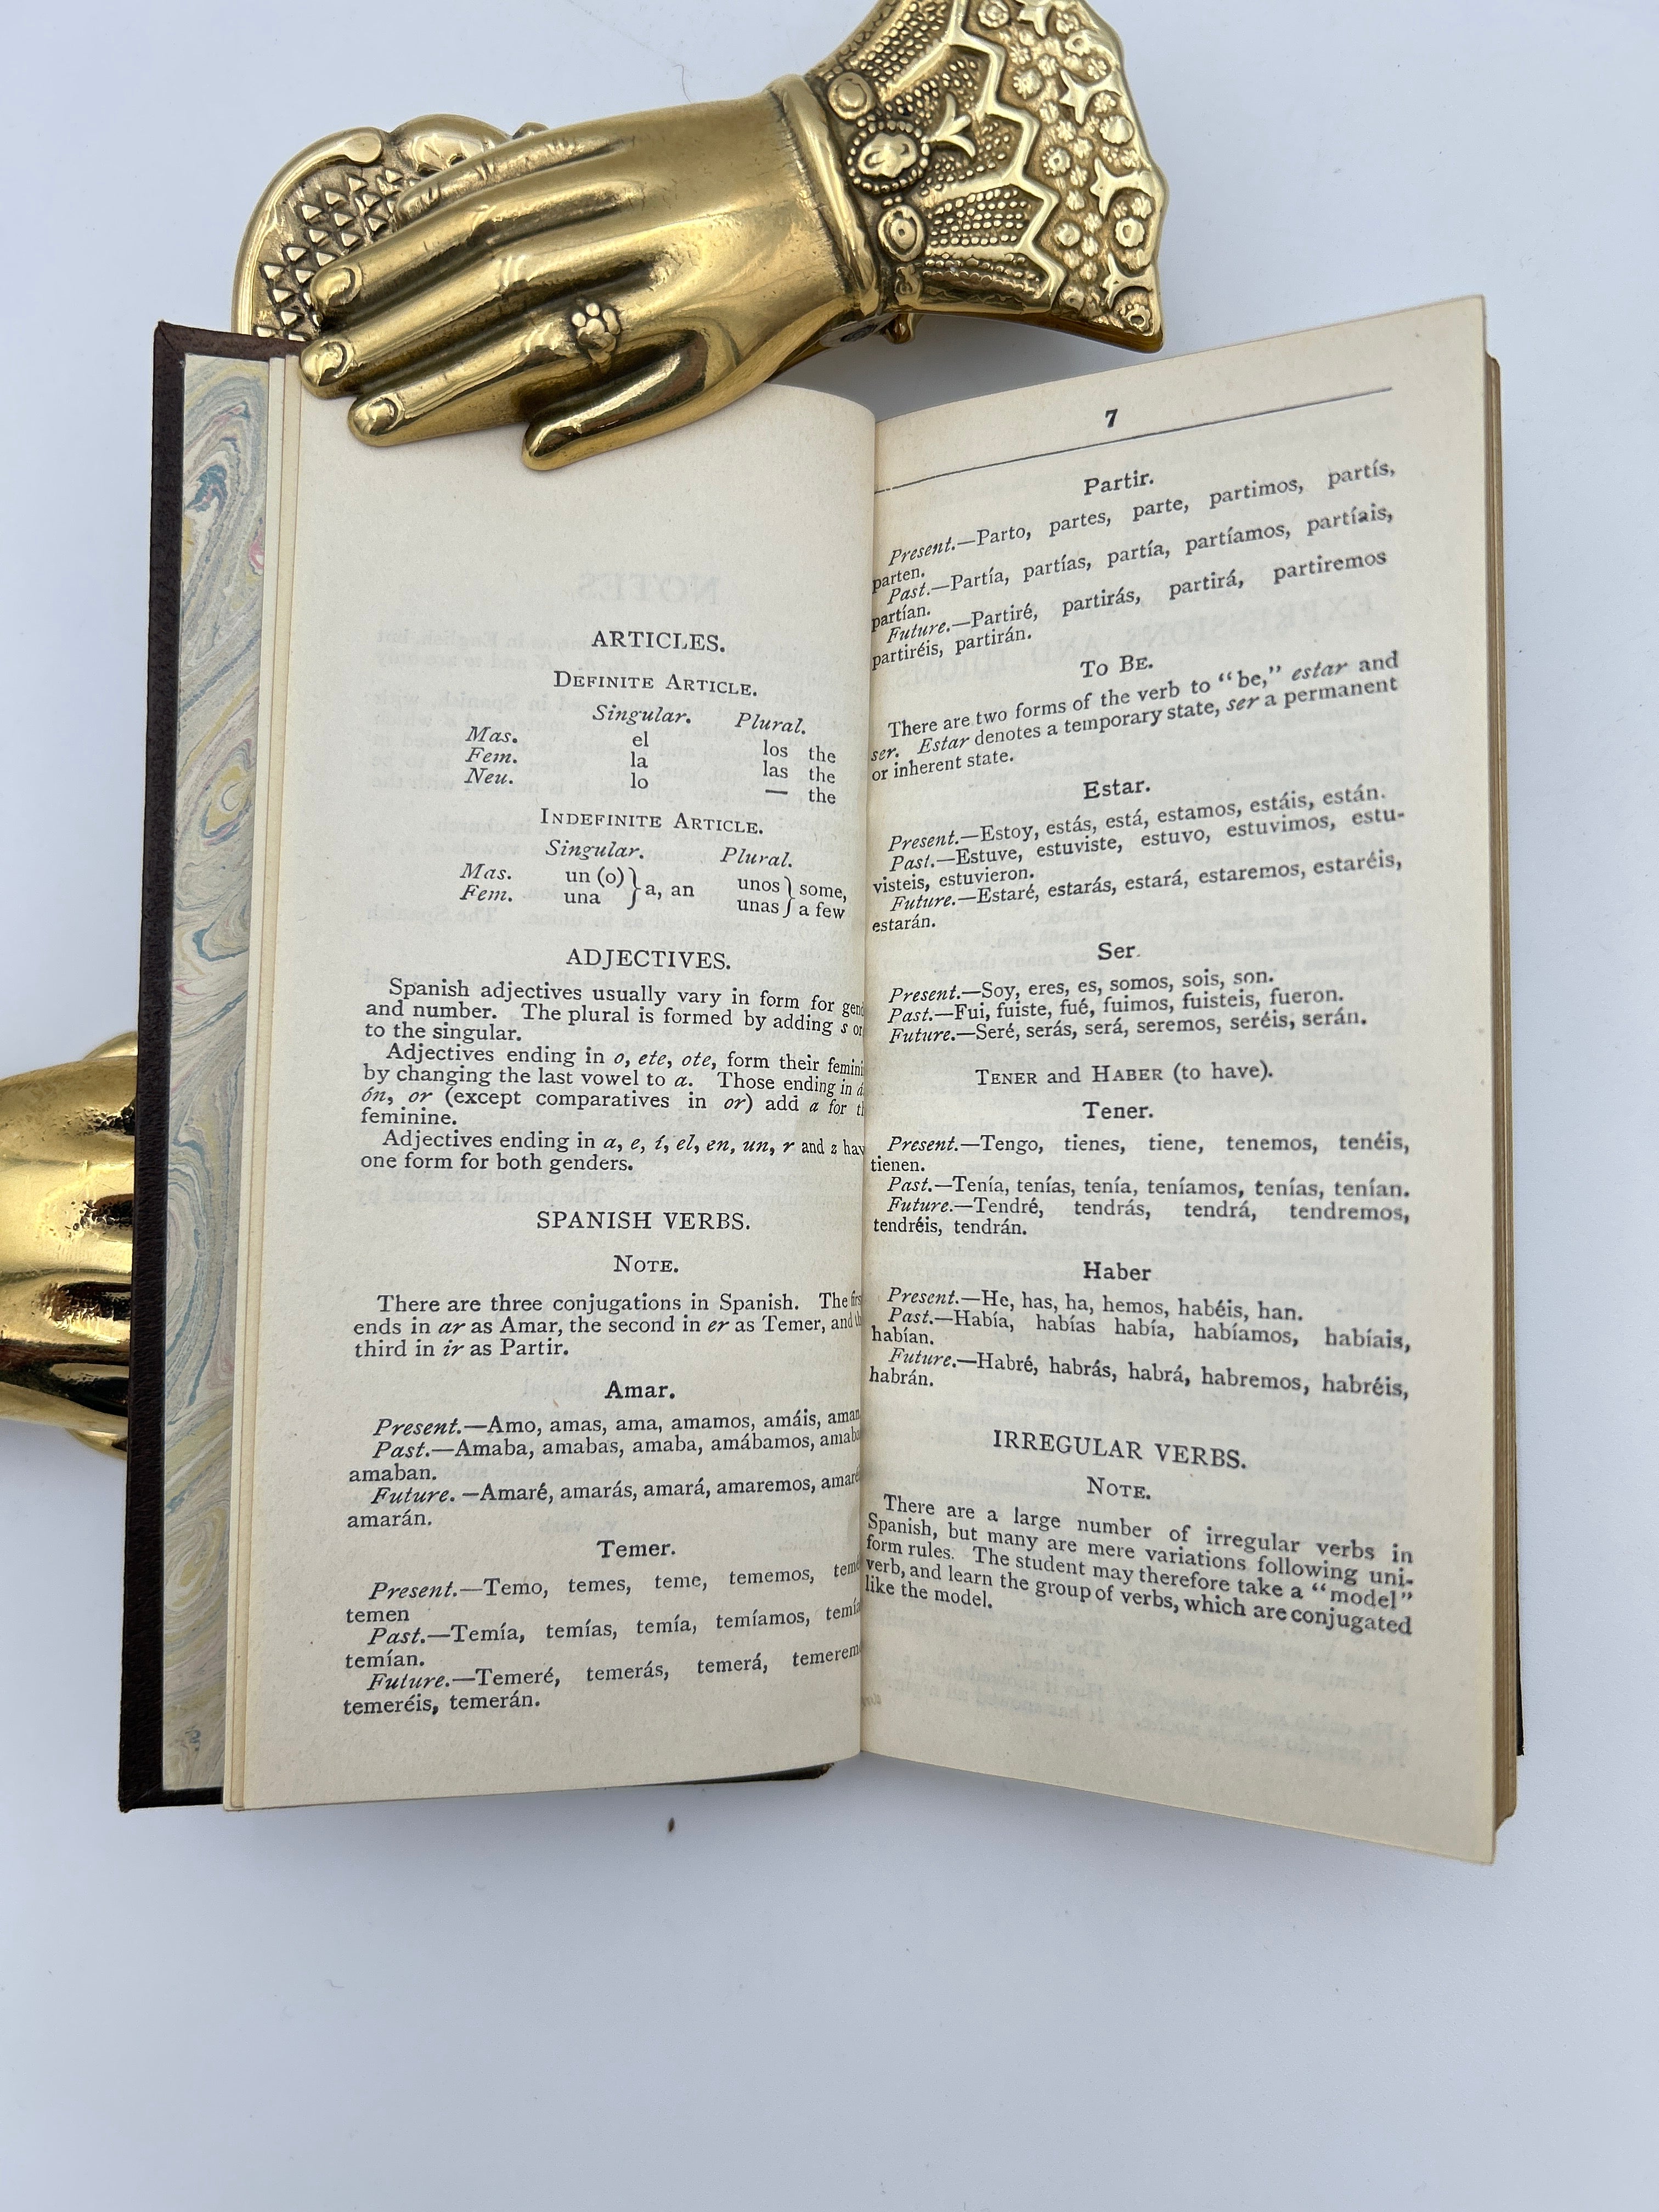 ARTICLES.
DEFINITE ARTICLE.
Singular. Plural.
Mas. el los the
Fem. la las the
Neu. lo — the
INDEFINITE ARTICLE.
Singular. Plural.
Mas. un (o) } a, an unos } some,
Fem. una unas a few
ADJECTIVES.
Spanish adjectives usually vary in form for
and number. The plural is formed by adding s
to the singular.
Adjectives ending in o, ete, ote, form their
by changing the last vowel to a. Those ending in
ón, or (except comparatives in or) add a for
feminine.
Adjectives ending in a, e, í, el, en, un, r and z
one form for both genders.
SPANISH VERBS.
NOTE.
There are three conjugations in Spanish. The
ends in ar as Amar, the second in er as Temer, and
third in ir as Partir.
Amar.
Present.—Amo, amas, ama, amamos, amáis, aman
Past.—Amaba, amabas, amaba, amábamos,
amaban.
Future.—Amaré, amarás, amará, amaremos,
amarán.
Temer.
Present.—Temo, temes, teme, tememos,
temen
Past.—Temía, temías, temía, temíamos,
temían.
Future.—Temeré, temerás, temerá,
temeréis, temerán.
7
Partir.
Present.—Parto, partes, parte, partimos, partís,
parten.
Past.—Partía, partías, partía, partíamos, partíais,
partían.
Future.—Partiré, partirás, partirá, partiremos
partiréis, partirán.
TO BE.
There are two forms of the verb to "be," estar and
ser. Estar denotes a temporary state, ser a permanent
or inherent state.
Estar.
Present.—Estoy, estás, está, estamos, estáis, están.
Past.—Estuve, estuviste, estuvo, estuvimos, estu-
visteis, estuvieron.
Future.—Estaré, estarás, estará, estaremos, estaréis,
estarán.
Ser.
Present.—Soy, eres, es, somos, sois, son.
Past.—Fui, fuiste, fué, fuimos, fuisteis, fueron.
Future.—Seré, serás, será, seremos, seréis, serán.
TENER and HABER (to have).
Tener.
Present.—Tengo, tienes, tiene, tenemos, tenéis,
tienen.
Past.—Tenía, tenías, tenía, teníamos, tenías, tenían.
Future.—Tendré, tendrás, tendrá, tendremos,
tendréis, tendrán.
Haber
Present.—He, has, ha, hemos, habéis, han.
Past.—Había, habías había, habíamos, habíais,
habían.
Future.—Habré, habrás, habrá, habremos, habréis,
habrán.
IRREGULAR VERBS.
NOTE.
There are a large number of irregular verbs in
Spanish, but many are mere variations following uni-
form rules. The student may therefore take a "model"
verb, and learn the group of verbs, which are conjugated
like the model.